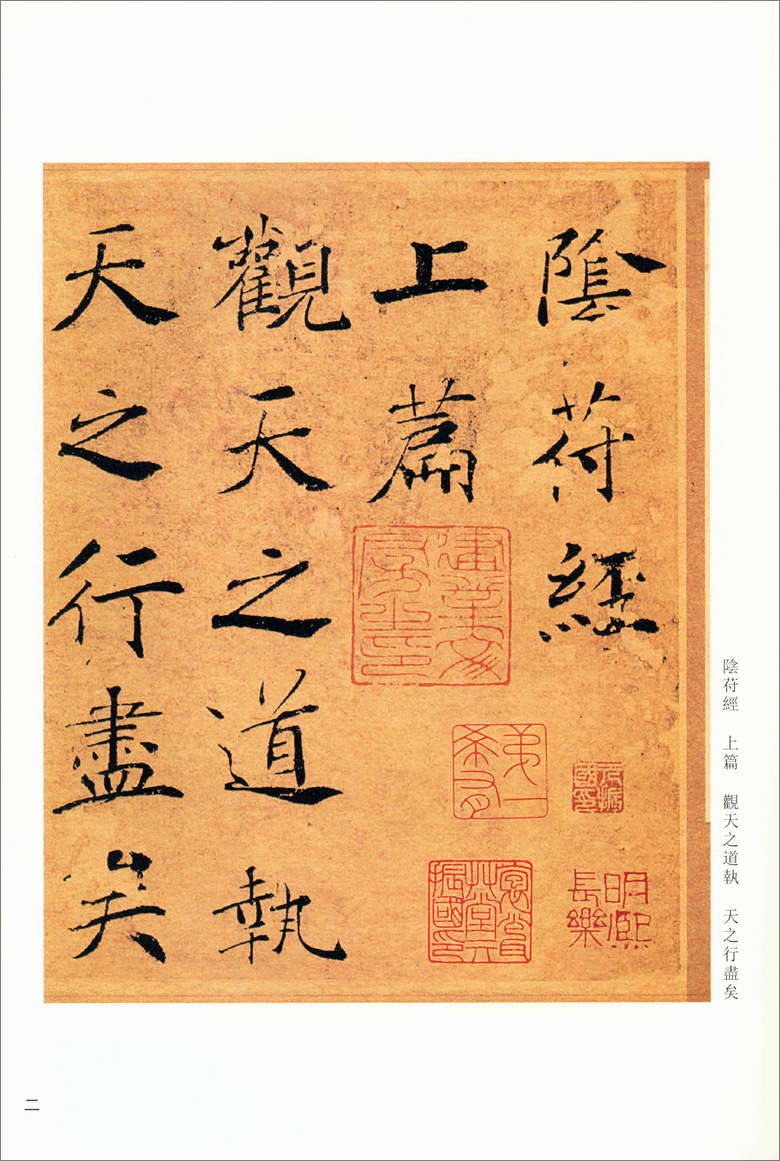 陰苻經
上篇
觀天之道執
天之行盡矣
建業文房之印
明熙長樂
陰苻經　上篇　觀天之道執　天之行盡矣
二